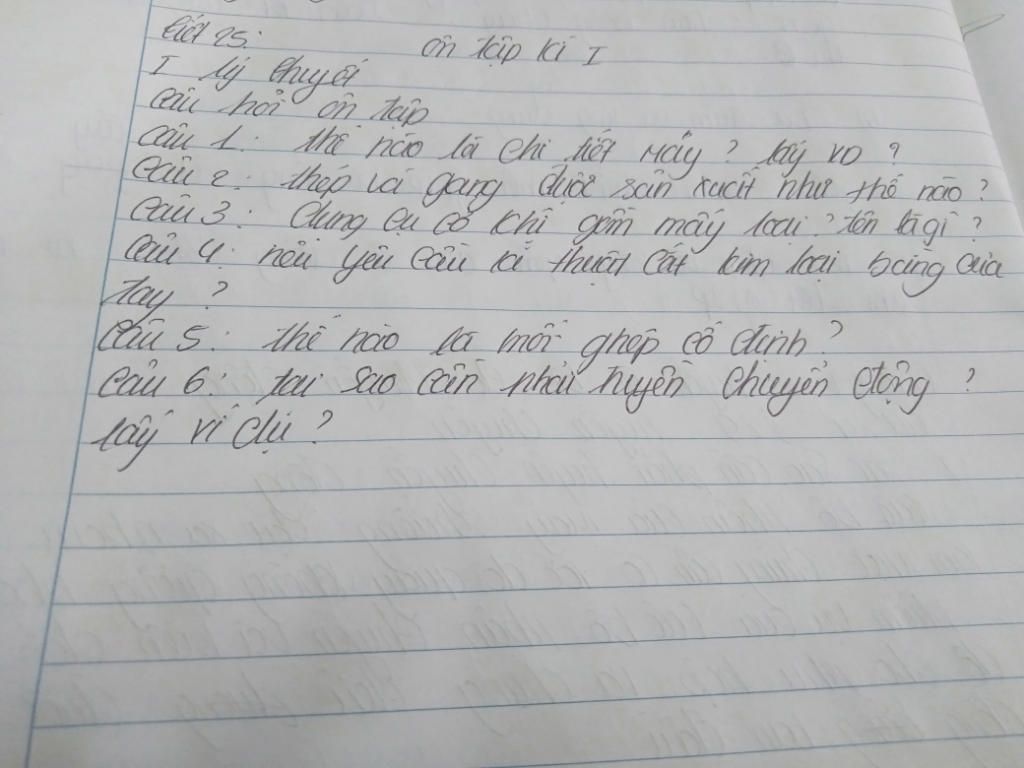 tiết 25: ôn tập kì I
I lý thuyết
câu hỏi ôn tập
câu 1: thế nào là chi tiết máy? lấy VD?
câu 2: thép và gang được sản xuất như thế nào?
câu 3: dụng cụ cơ khí gồm mấy loại? tên là gì?
câu 4: nêu yêu cầu kĩ thuật cắt kim loại bằng cưa
tay?
câu 5: thế nào là mối ghép cố định?
câu 6: tại sao cần phải truyền chuyển động?
lấy ví dụ?